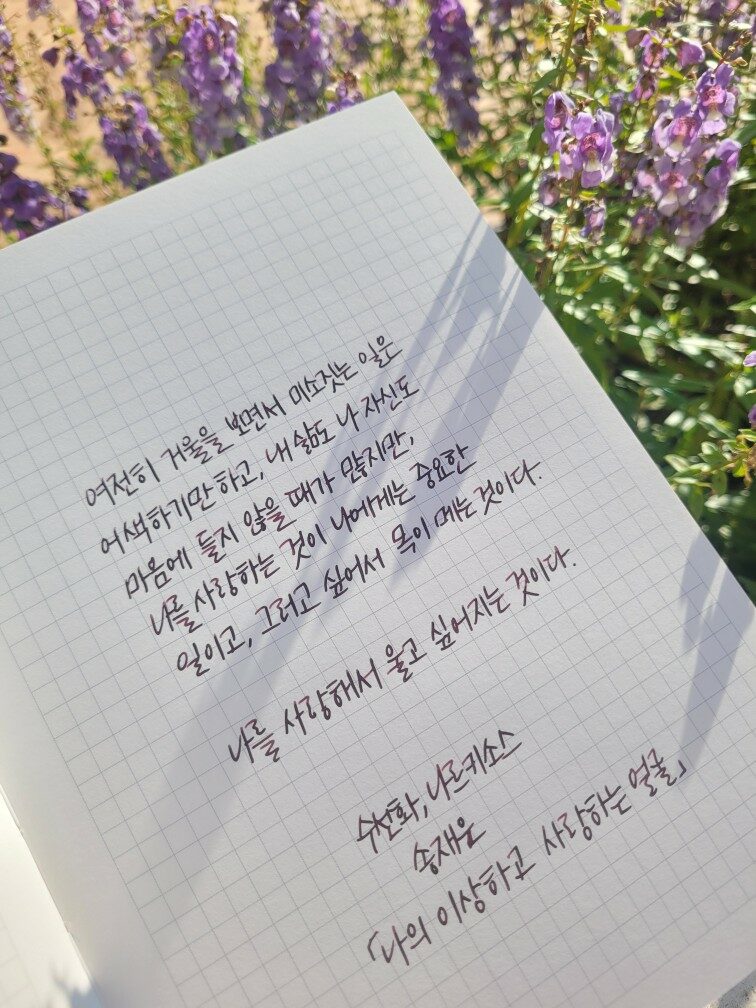 여전히 거울을 보면서 미소짓는 일은
어색하기만 하고, 내 삶도 나 자신도
마음에 들지 않을 때가 많지만,
나를 사랑하는 것이 나에게는 중요한
일이고, 그러고 싶어서 목이 메는 것이다.
나를 사랑해서 울고 싶어지는 것이다.
수선화, 나르키소스
송재은
「나의 이상하고 사랑하는 얼굴」